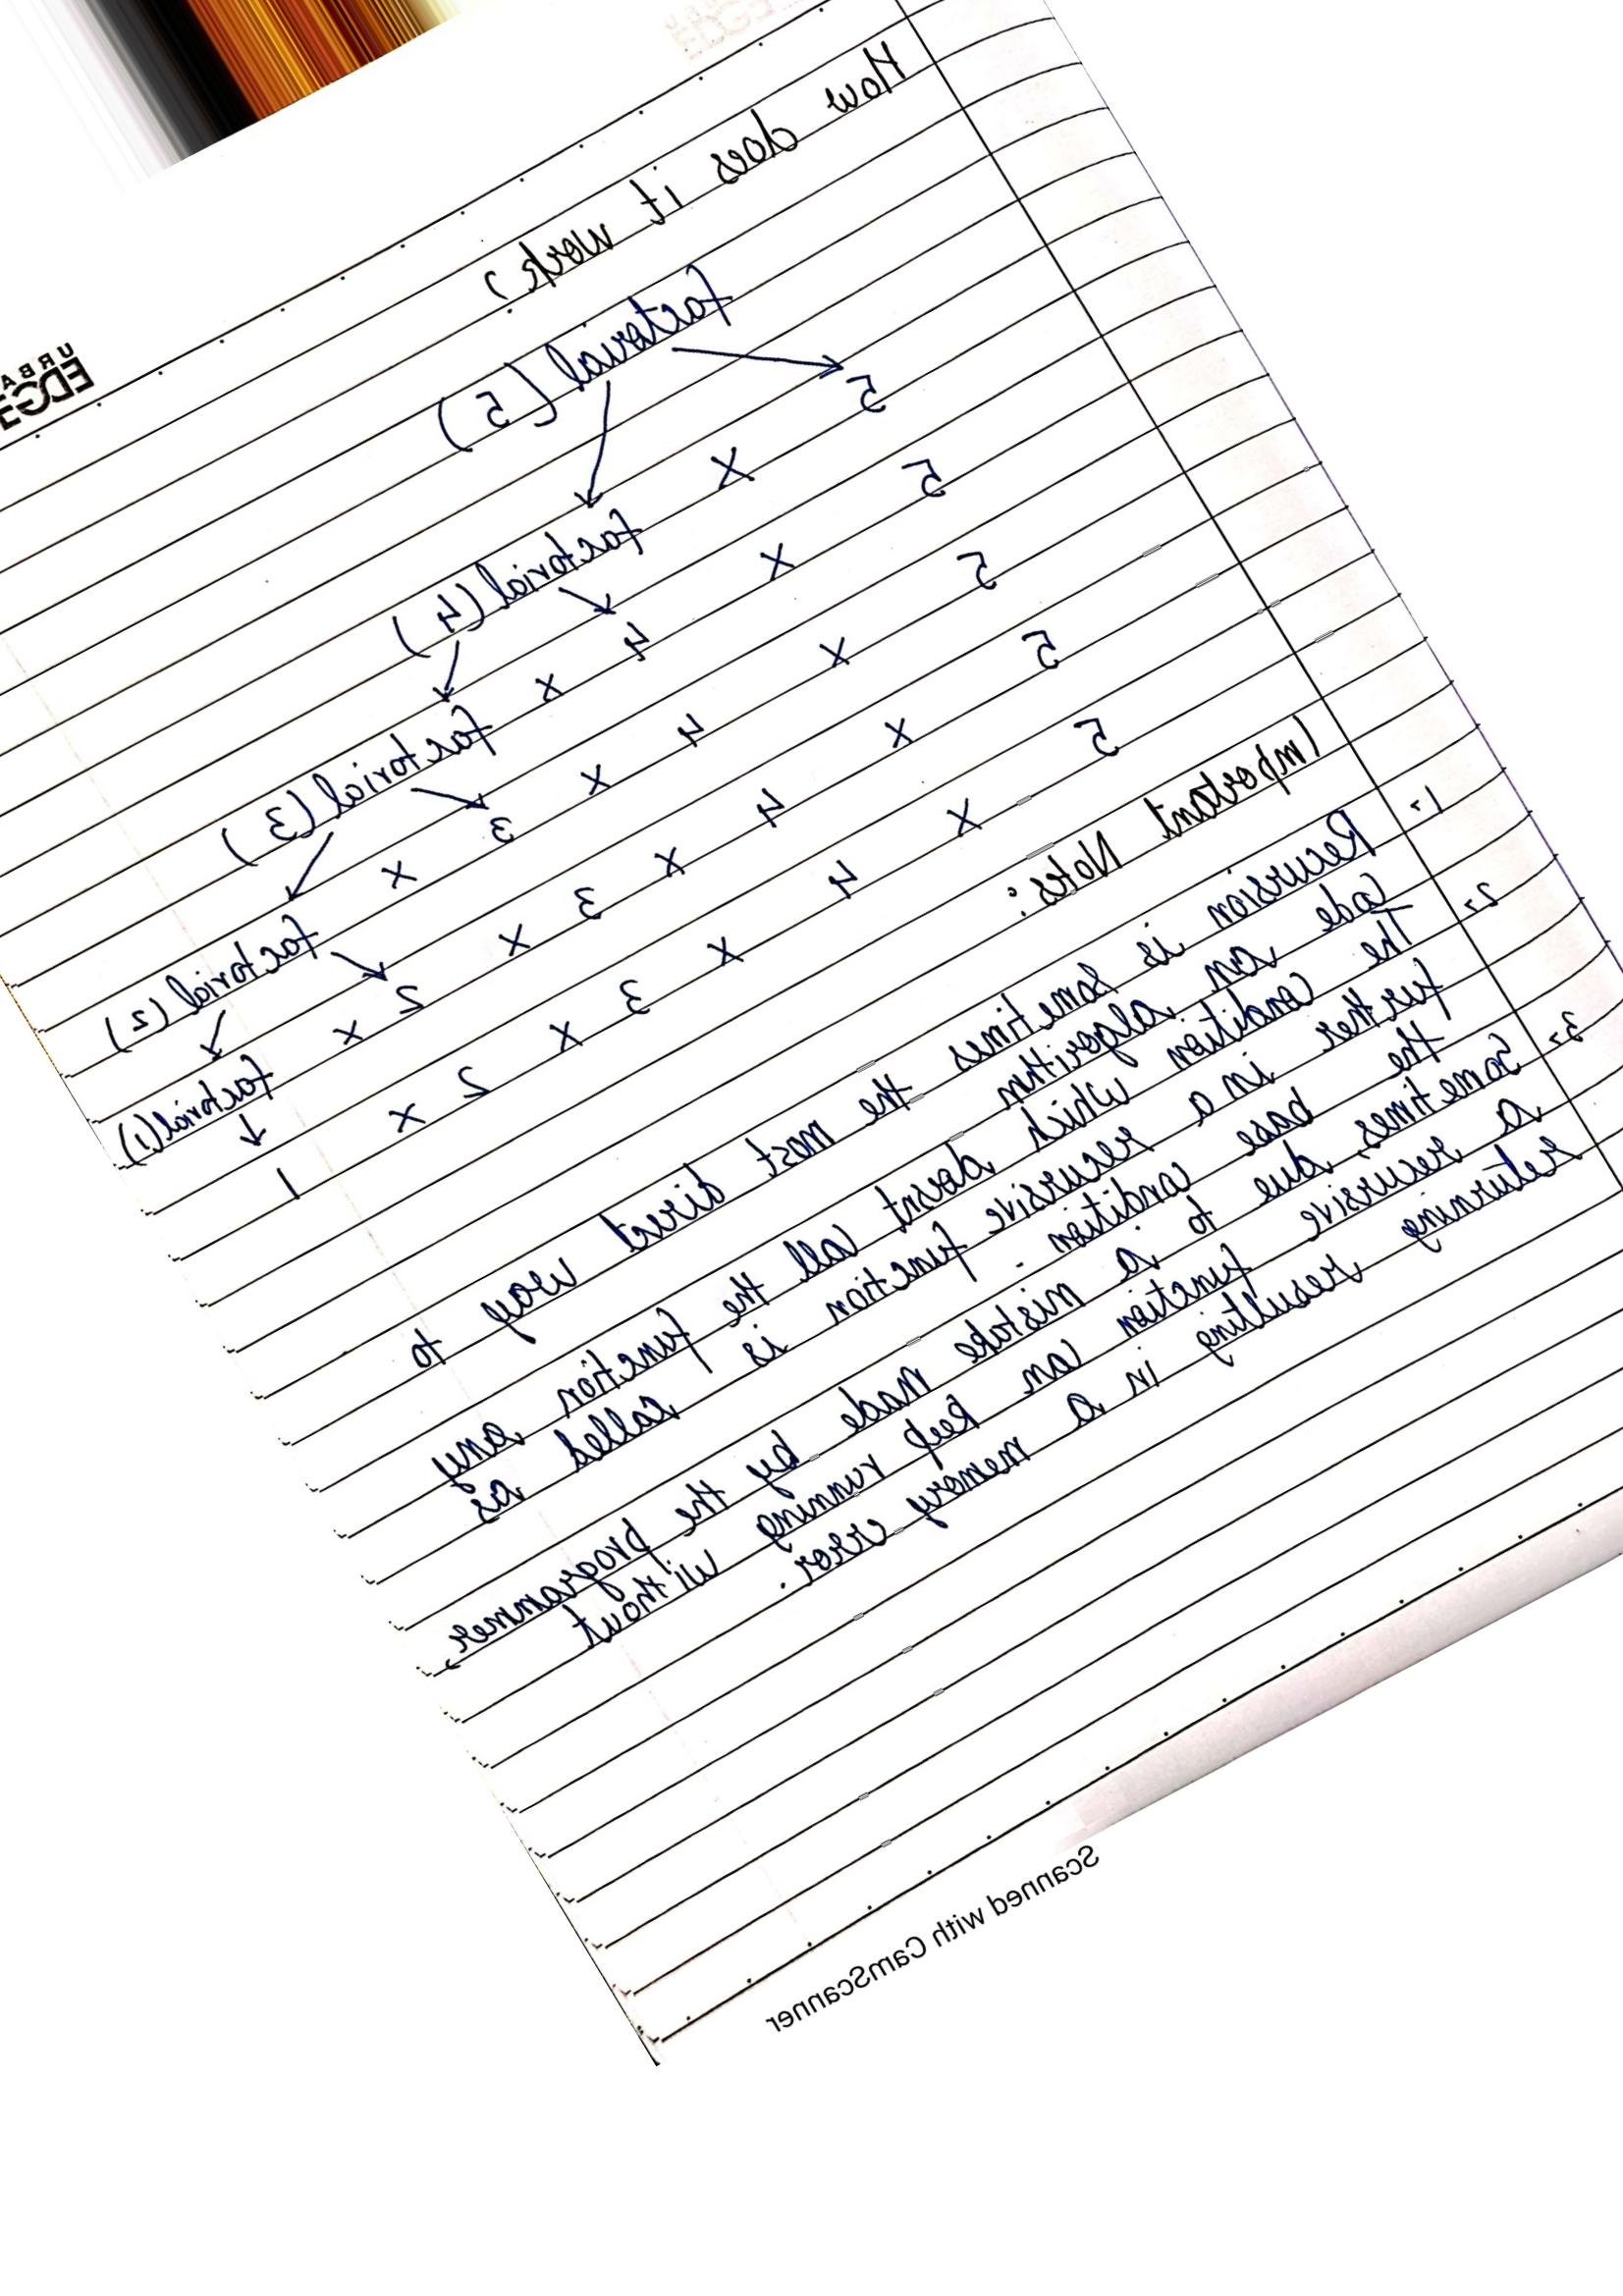 URBA
EDGE
How does it works?
factorial (5)
5 x factorial (4)
5 x 4 x factorial (3)
5 x 4 x 3 x factorial (2)
5 x 4 x 3 x 2 x factorial (1)
5 x 4 x 3 x 2 x 1
Important Notes:
1> Recursion is sometimes the most direct way to
code an algorithm
2> The condition which doesnt call the function any
further in a recursive function is called as
the base condition.
3> Sometimes, due to a mistake made by the programmer,
a recursive function can keep running without
returning resulting in a memory error.
Scanned with CamScanner